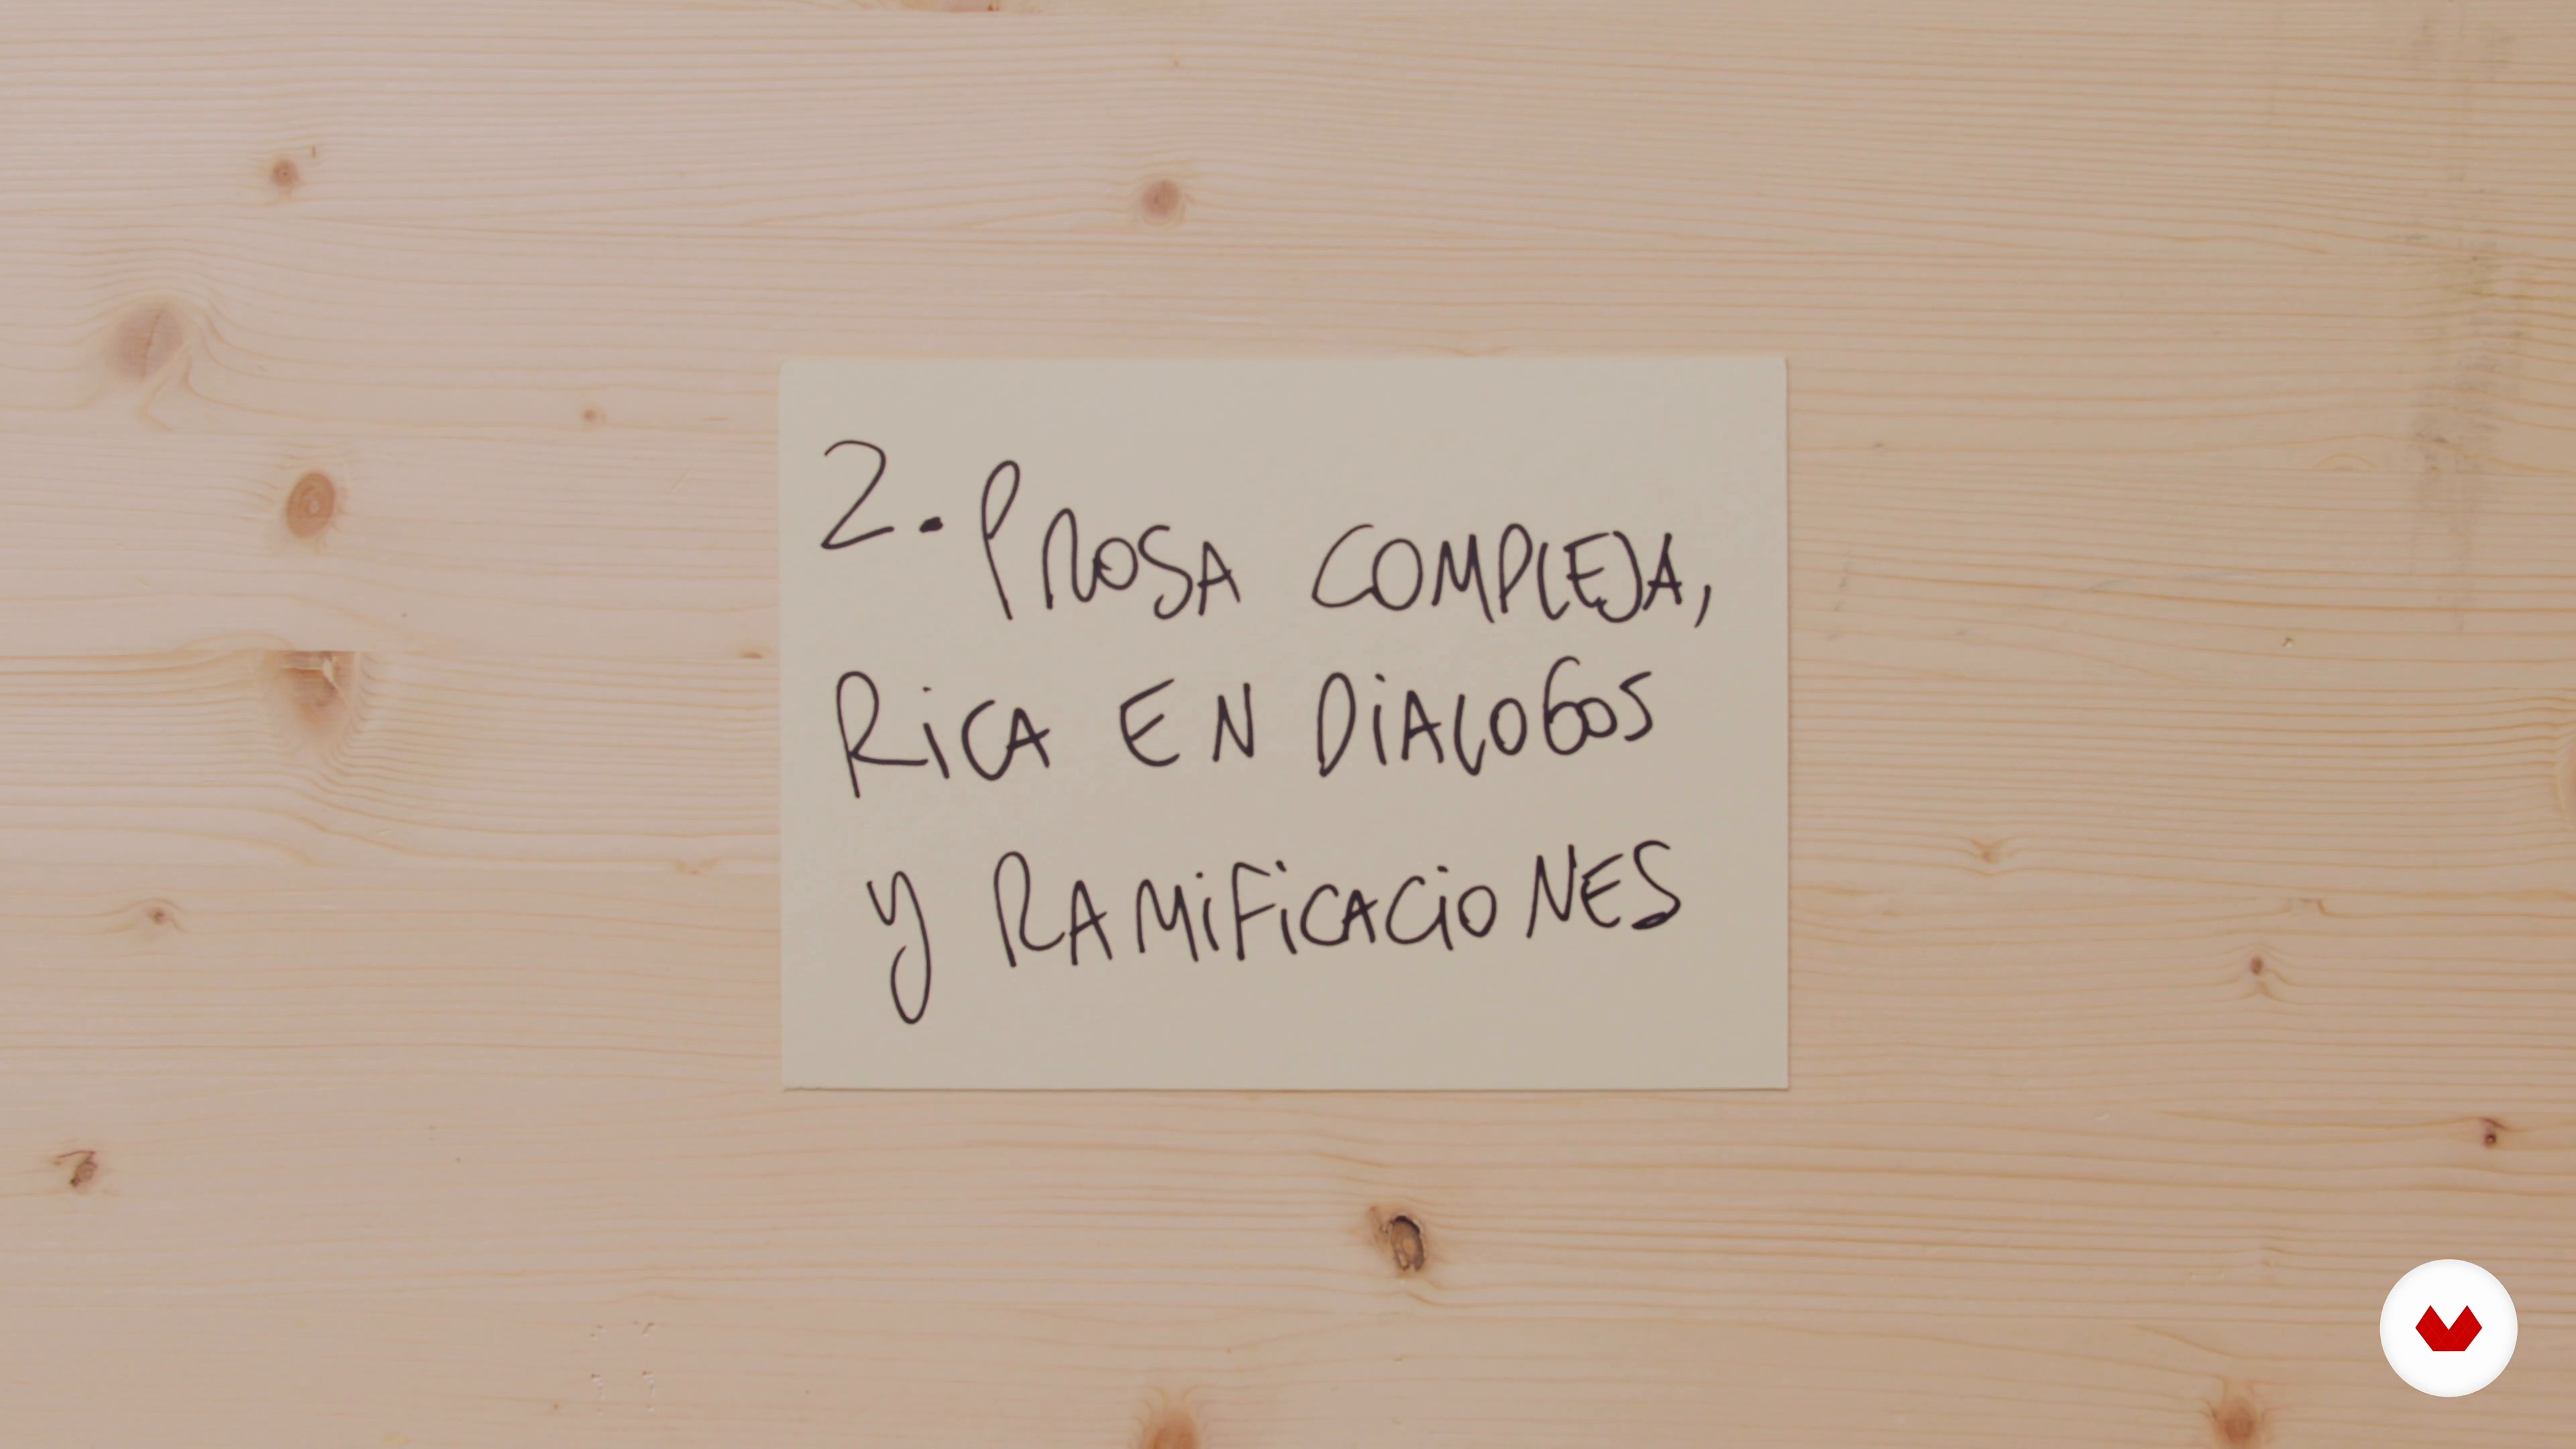 2. PROSA COMPLEJA,
RICA EN DIALOGOS
y RAMIFICACIONES